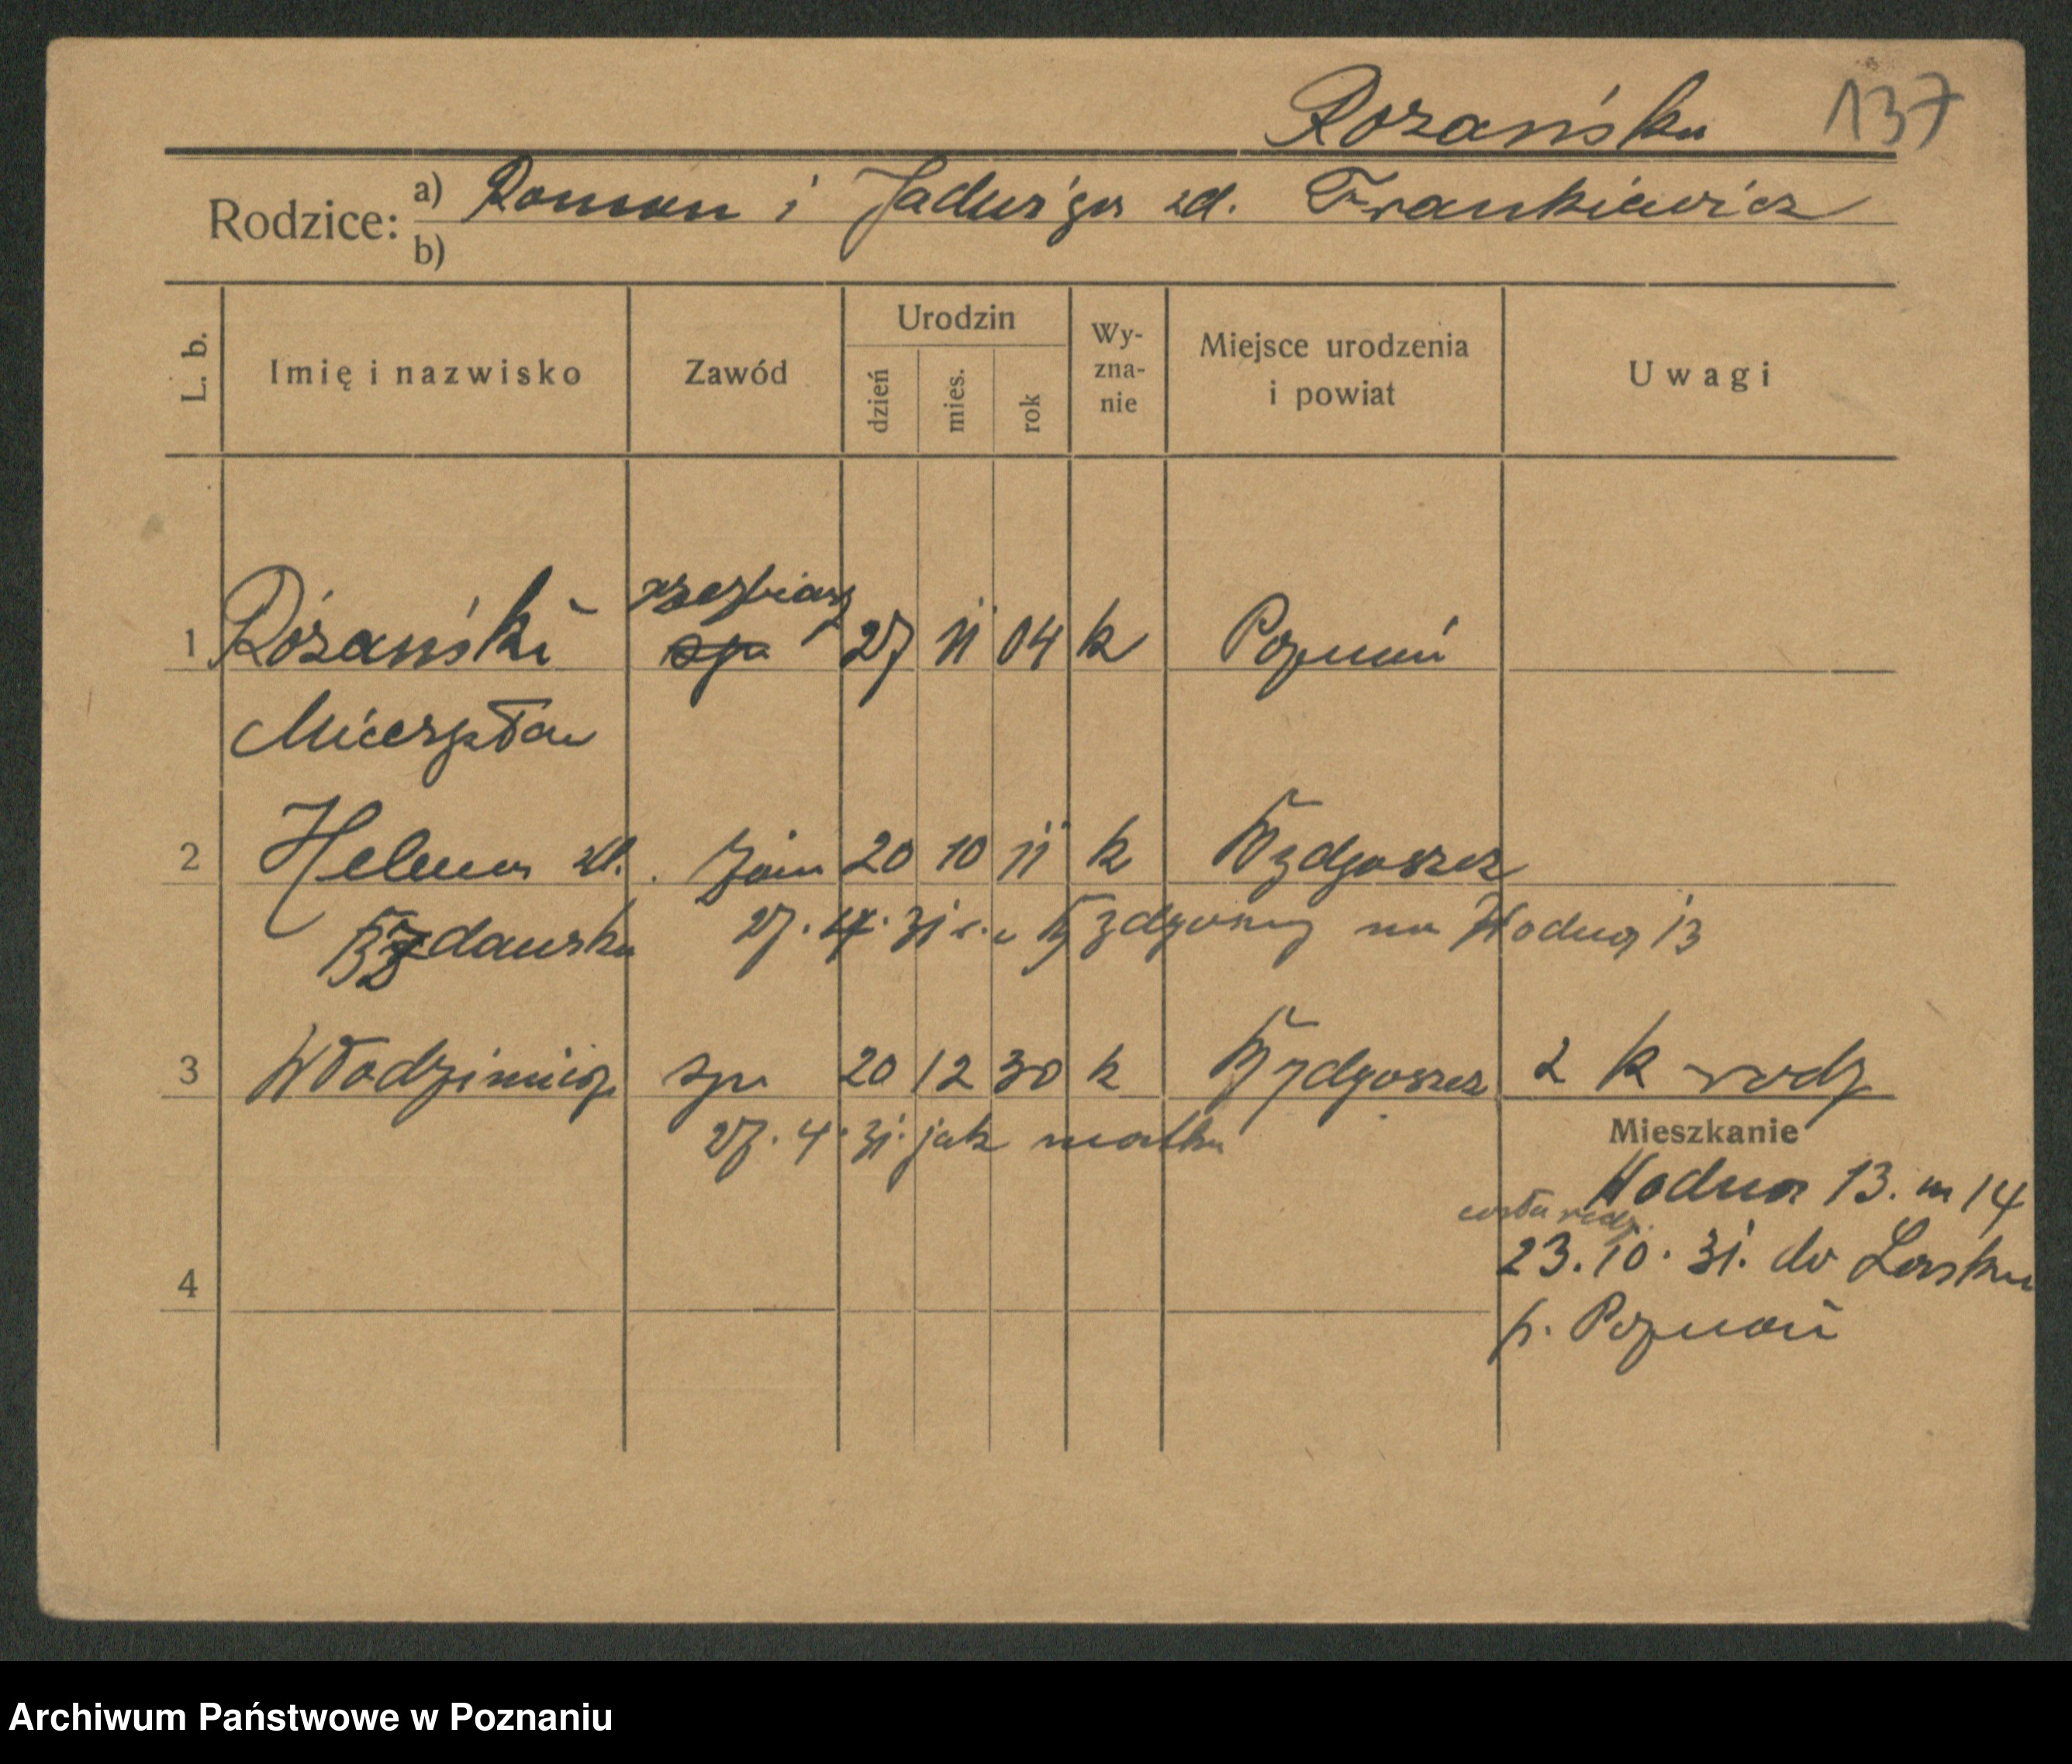 Rozańska 137
Rodzice: a) Roman i Jadwiga zd. Frankiewicz
b)
L. b. Imię i nazwisko Zawód Urodzin dzień mies. rok Wy-zna-nie Miejsce urodzenia i powiat Uwagi
rzezbiarz
1 Różański 27 11 04 k Poznań
Mieczysław
2 Helena zd. 20 10 11 k Bydgoszcz
27. 4. 31 z Bydgoszczy na Wodną 13
3 Włodzimierz syn 20 12 30 k Bydgoszcz 2 k rodz
27. 4. 31. jak matka
Mieszkanie
Wodna 13. m 14
cała rodz.
23. 10. 31. do
4
p. Poznań
Archiwum Państwowe w Poznaniu